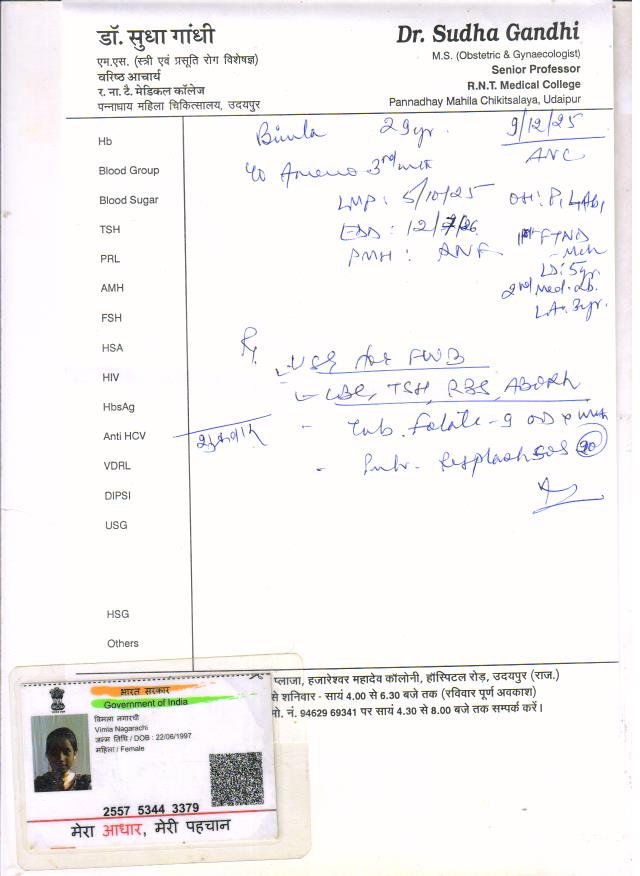 डॉ. सुधा गांधी
एम.एस. (स्त्री एवं प्रसूति रोग विशेषज्ञ)
वरिष्ठ आचार्य
र. ना. टै. मेडिकल कॉलेज
पन्नाधाय महिला चिकित्सालय, उदयपुर
Dr. Sudha Gandhi
M.S. (Obstetric & Gynaecologist)
Senior Professor
R.N.T. Medical College
Pannadhay Mahila Chikitsalaya, Udaipur
Bimla 29yr. 9/12/25
ANC
3rd mth
LMP: 5/10/25 OH: P1L1Ab1
EDD: 12/7/26 1st FTND
PMH: - Mch
LD: 5yr.
2nd Med. Ab.
LA: 3yr.
Hb
Blood Group
Blood Sugar
TSH
PRL
AMH
FSH
HSA
HIV
HbsAg
Anti HCV
VDRL
DIPSI
USG
HSG
Others
Rx
- USG for FWB
- CBC, TSH, RBS, ABORh
- Tab. Folate-9 OD x mth
- SOS 20
प्लाजा, हजारेश्वर महादेव कॉलोनी, हॉस्पिटल रोड़, उदयपुर (राज.)
से शनिवार - सायं 4.00 से 6.30 बजे तक (रविवार पूर्ण अवकाश)
मो. नं. 94629 69341 पर सायं 4.30 से 8.00 बजे तक सम्पर्क करें।
भारत सरकार
Government of India
विमला नगारची
Vimla Nagarachi
जन्म तिथि / DOB : 22/06/1997
महिला / Female
2557 5344 3379
मेरा आधार, मेरी पहचान